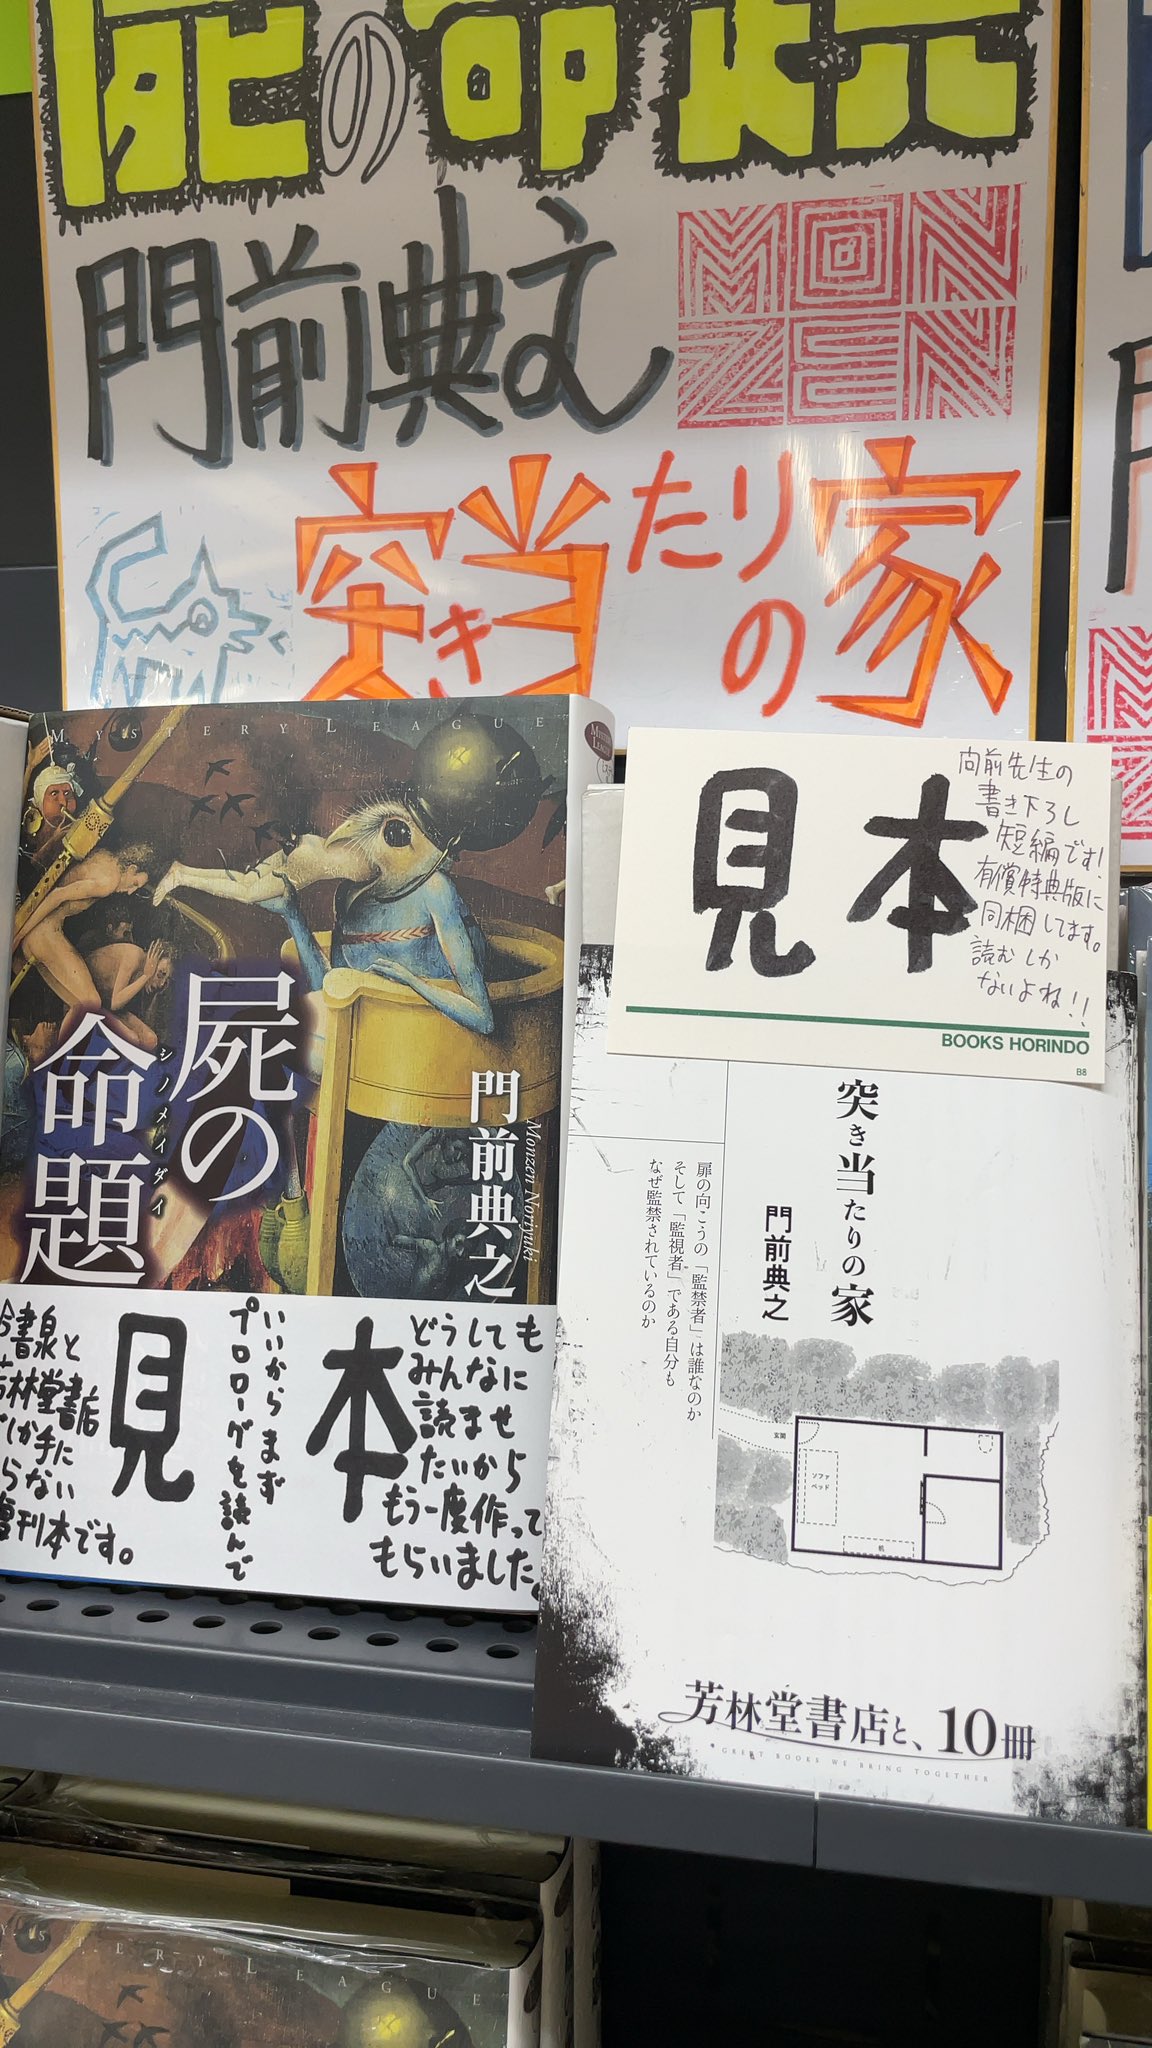 屍の命題
門前典之
MON
ZEN
突き当たりの家
MYSTERY LEAGUE
MYSTERY
LEAGUE
屍の
命題
シノメイダイ
門前典之
Monzen Noriyuki
どうしても
みんなに
読ませ
たいから
もう一度作って
もらいました。
見本
いいからまず
プロローグを読んで
書泉と
芳林堂書店
でしか手に
らない
刊本です。
見本
向前先生の
書き下ろし
短編です!
有償特典版に
同梱してます。
読むしか
ないよね!!
BOOKS HORINDO
B8
突き当たりの家
門前典之
扉の向こうの「監禁者」は誰なのか
そして「監視者」である自分も
なぜ監禁されているのか
玄関
ソファ
ベッド
机
芳林堂書店と、10冊
GREAT BOOKS WE BRING TOGETHER
MYSTERY LEAGUE